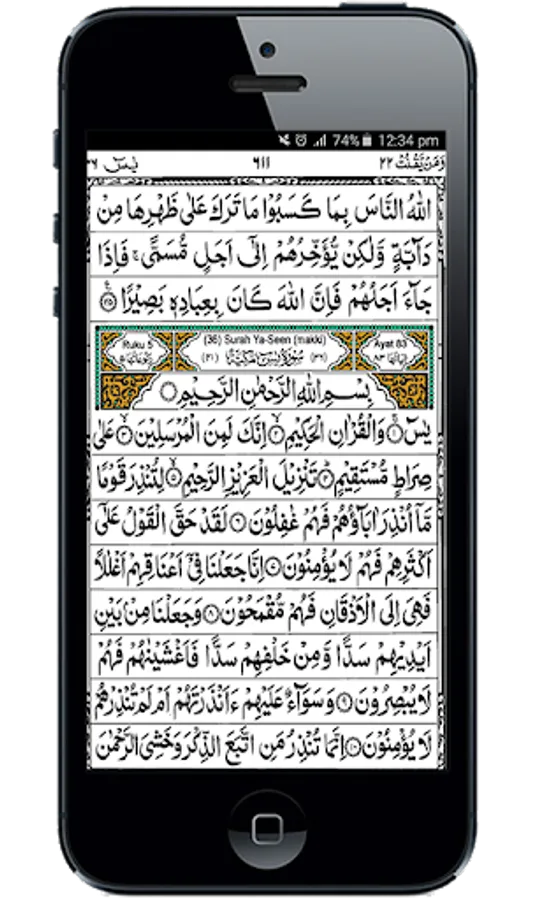 74% 12:34 pm
وَمَنْ يَّقْنُتْ ٢٢ ٦١١ يٰسٓ ٣٦
اللّٰهُ النَّاسَ بِمَا كَسَبُوْا مَا تَرَكَ عَلٰى ظَهْرِهَا مِنْ
دَآبَّةٍ وَّلٰكِنْ يُّؤَخِّرُهُمْ اِلٰٓى اَجَلٍ مُّسَمًّى ۚ فَاِذَا
جَآءَ اَجَلُهُمْ فَاِنَّ اللّٰهَ كَانَ بِعِبَادِهٖ بَصِيْرًا ﴿٤٥﴾
Ayat 83 (36) Surah Ya-Seen (makki) Ruku 5
اٰيَاتُهَا ٨٣ (٣٦) سُوْرَةُ يٰسٓ مَكِّيَّةٌ (٤١) رُكُوْعَاتُهَا ٥
بِسْمِ اللّٰهِ الرَّحْمٰنِ الرَّحِيْمِ
يٰسٓ ﴿١﴾ وَالْقُرْاٰنِ الْحَكِيْمِ ﴿٢﴾ اِنَّكَ لَمِنَ الْمُرْسَلِيْنَ ﴿٣﴾ عَلٰى
صِرَاطٍ مُّسْتَقِيْمٍ ﴿٤﴾ تَنْزِيْلَ الْعَزِيْزِ الرَّحِيْمِ ﴿٥﴾ لِتُنْذِرَ قَوْمًا
مَّآ اُنْذِرَ اٰبَآؤُهُمْ فَهُمْ غٰفِلُوْنَ ﴿٦﴾ لَقَدْ حَقَّ الْقَوْلُ عَلٰٓى
اَكْثَرِهِمْ فَهُمْ لَا يُؤْمِنُوْنَ ﴿٧﴾ اِنَّا جَعَلْنَا فِيْٓ اَعْنَاقِهِمْ اَغْلٰلًا
فَهِيَ اِلَى الْاَذْقَانِ فَهُمْ مُّقْمَحُوْنَ ﴿٨﴾ وَجَعَلْنَا مِنْۢ بَيْنِ
اَيْدِيْهِمْ سَدًّا وَّمِنْ خَلْفِهِمْ سَدًّا فَاَغْشَيْنٰهُمْ فَهُمْ
لَا يُبْصِرُوْنَ ﴿٩﴾ وَسَوَآءٌ عَلَيْهِمْ ءَاَنْذَرْتَهُمْ اَمْ لَمْ تُنْذِرْهُمْ
لَا يُؤْمِنُوْنَ ﴿١٠﴾ اِنَّمَا تُنْذِرُ مَنِ اتَّبَعَ الذِّكْرَ وَخَشِيَ الرَّحْمٰنَ